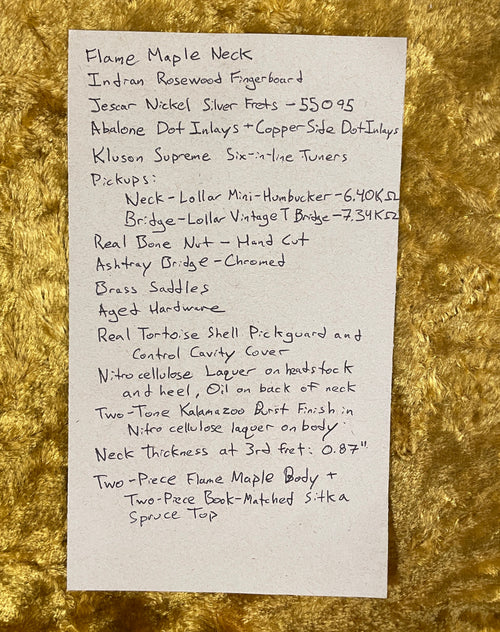 Flame Maple Neck
Indian Rosewood Fingerboard
Jescar Nickel Silver Frets - 55095
Abalone Dot Inlays + Copper Side Dot Inlays
Kluson Supreme Six-in-line Tuners
Pickups:
Neck - Lollar Mini-Humbucker - 6.40KΩ
Bridge - Lollar Vintage T Bridge - 7.34KΩ
Real Bone Nut - Hand Cut
Ashtray Bridge - Chromed
Brass Saddles
Aged Hardware
Real Tortoise Shell Pickguard and
Control Cavity Cover
Nitrocellulose Laquer on headstock
and heel, Oil on back of neck
Two-Tone Kalamazoo Burst Finish in
Nitrocellulose laquer on body
Neck Thickness at 3rd fret: 0.87"
Two-Piece Flame Maple Body +
Two-Piece Book-Matched Sitka
Spruce Top